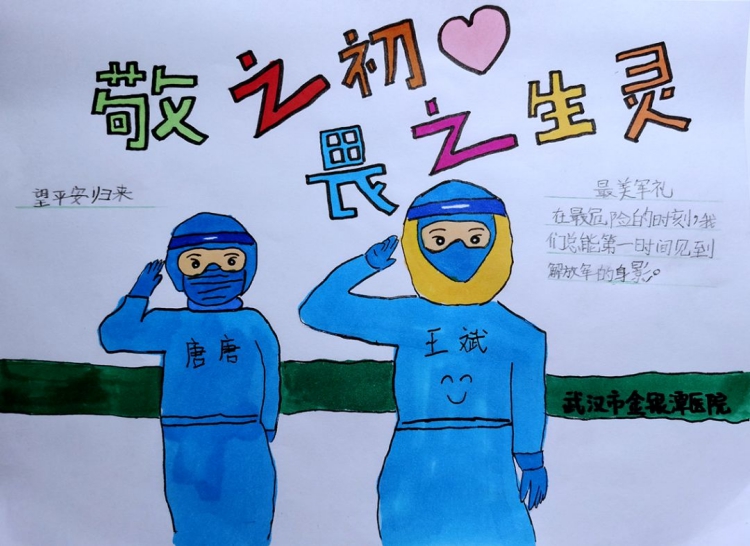 敬之初
畏之生灵
望平安归来
最美军礼
在最危险的时刻,我
们总能第一时间见到
解放军的身影。
唐唐
王斌
武汉市金银潭医院